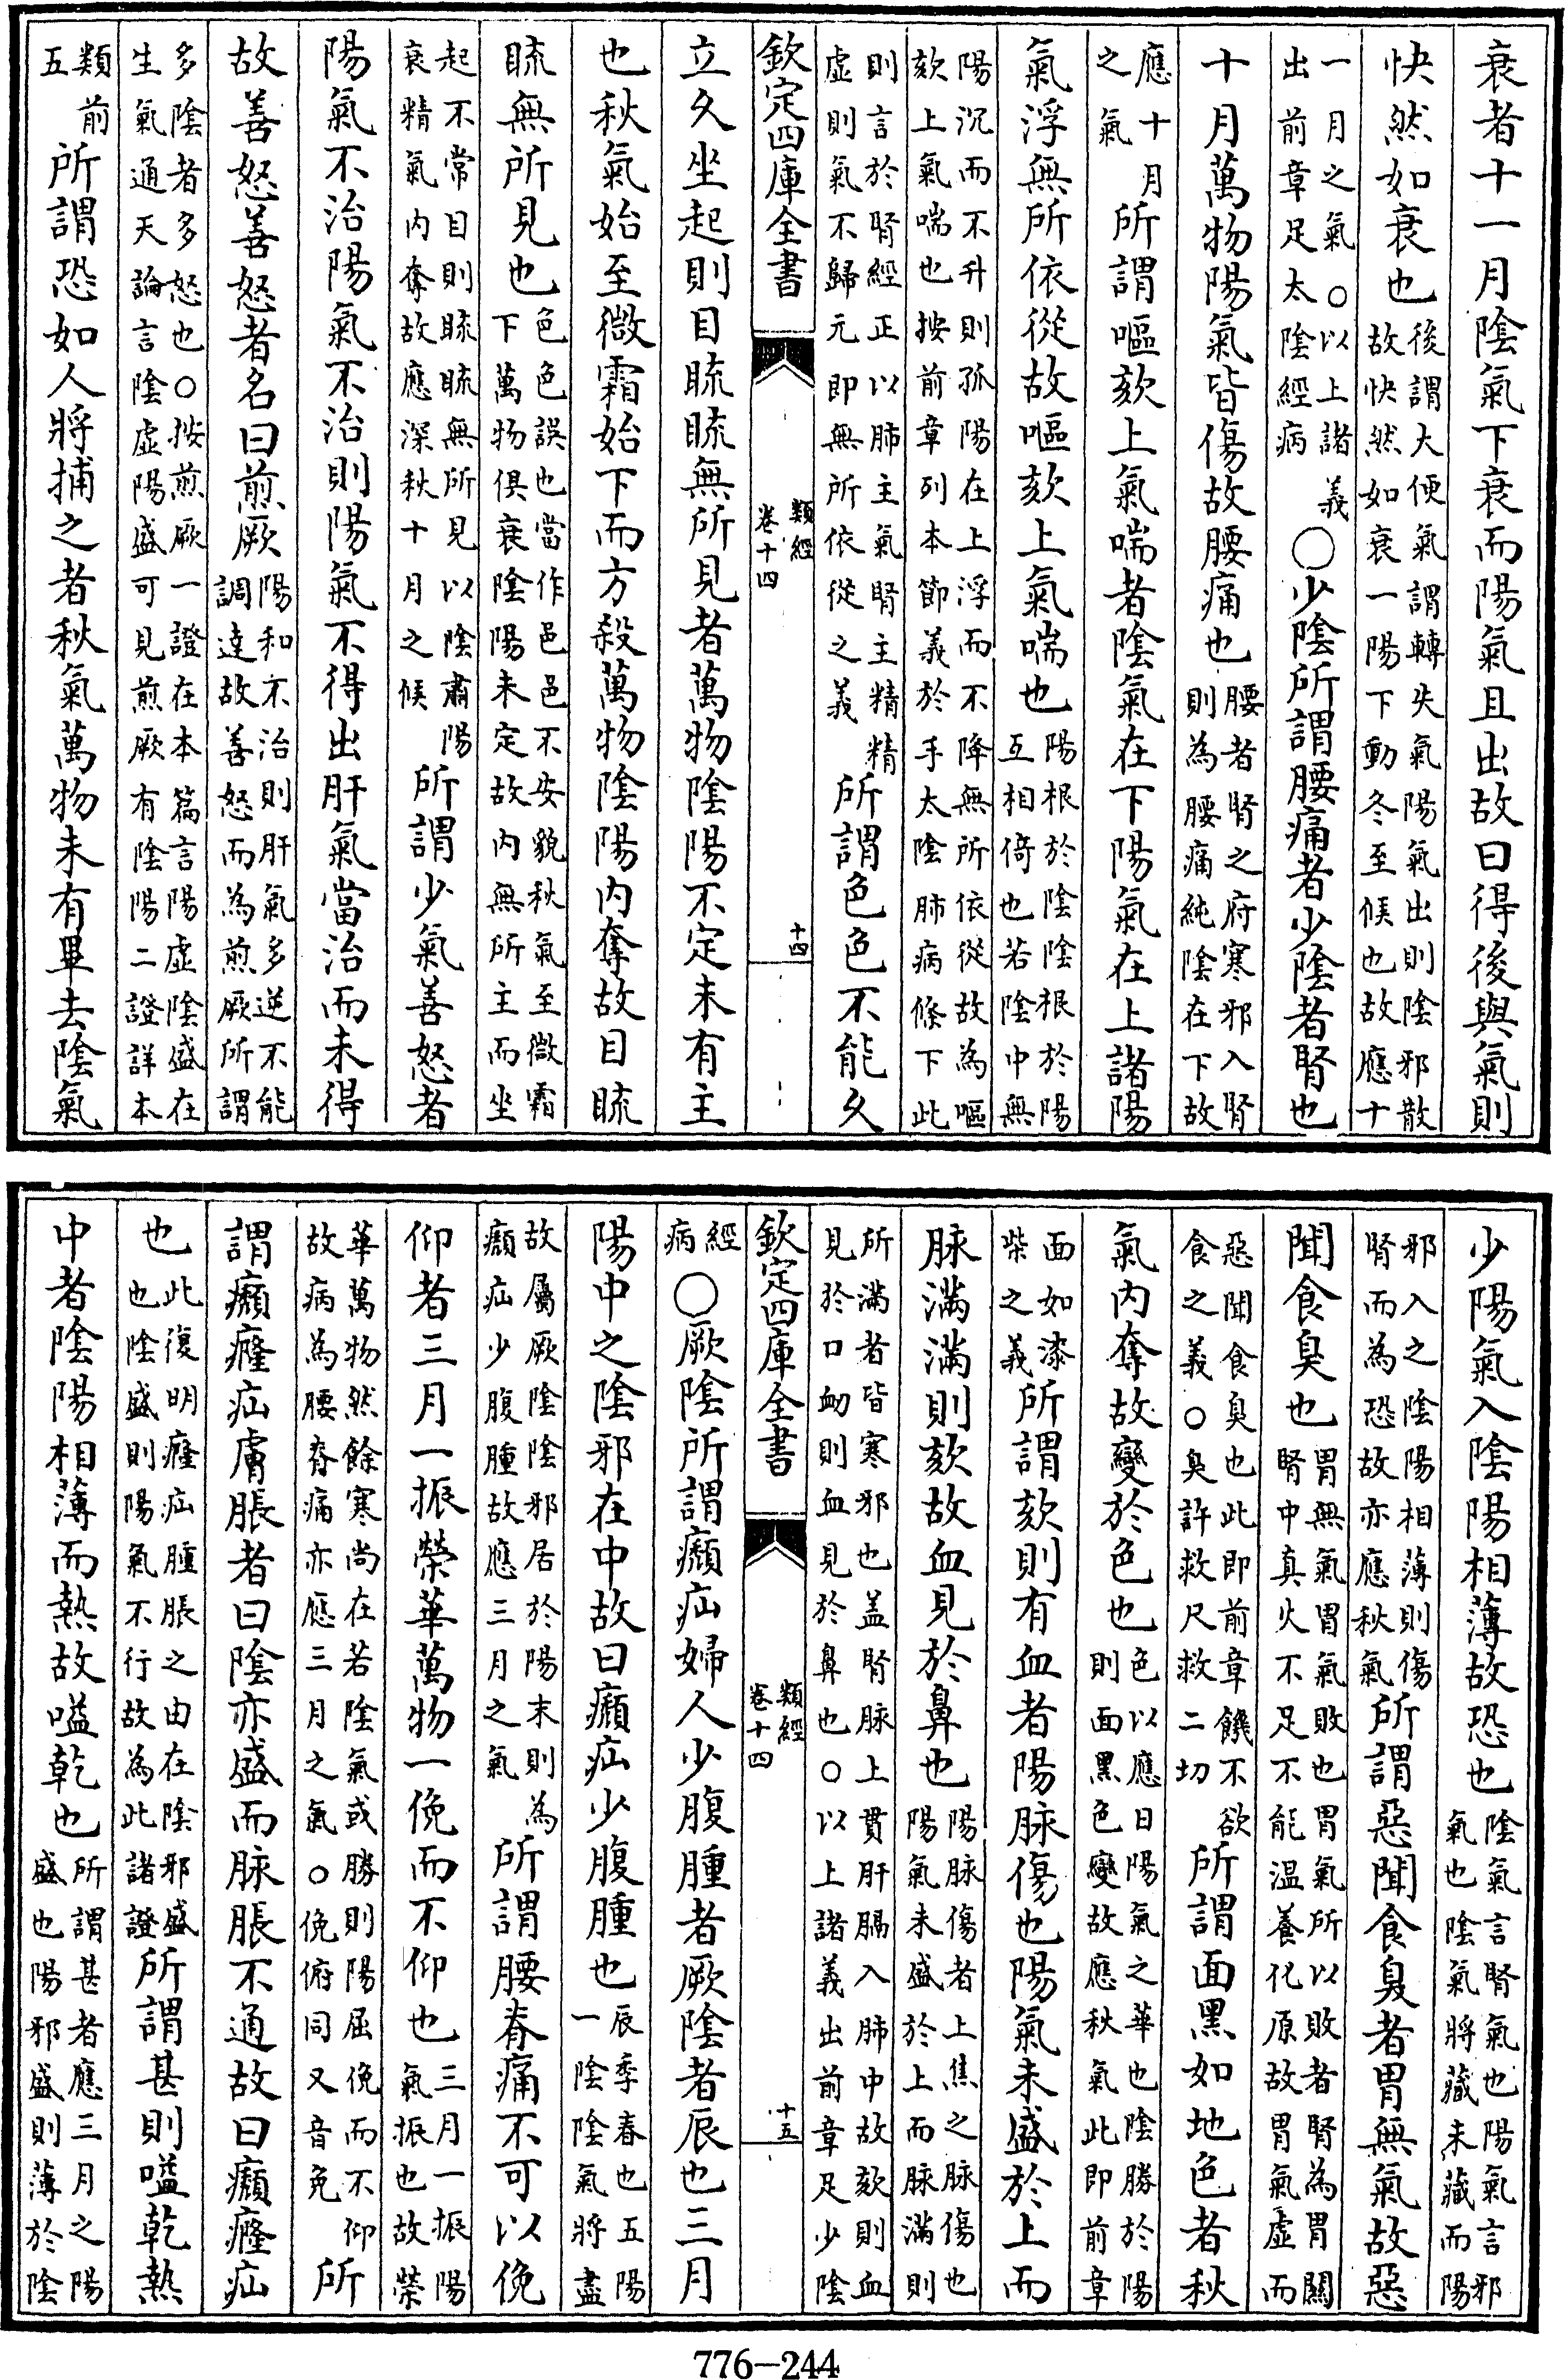 衰者十一月陰氣下衰而陽氣且出故曰得後與氣則
快然如衰也後謂大便氣謂轉失氣陽氣出則陰邪散故快然如衰一陽下動冬至候也故應十
一月之氣○以上諸義出前章足太陰經病○少陰所謂腰痛者少陰者腎也
十月萬物陽氣皆傷故腰痛也腰者腎之府寒邪入腎則為腰痛純陰在下故
應十月之氣所謂嘔欬上氣喘者陰氣在下陽氣在上諸陽
氣浮無所依從故嘔欬上氣喘也陽根於陰陰根於陽互相倚也若陰中無
陽沉而不升則孤陽在上浮而不降無所依從故為嘔欬上氣喘也按前章列本節義於手太陰肺病條下此
則言於腎經正以肺主氣腎主精精虛則氣不歸元即無所依從之義所謂色色不能久
欽定四庫全書
類經
卷十四
十四
立久坐起則目䀮䀮無所見者萬物陰陽不定未有主
也秋氣始至微霜始下而方殺萬物陰陽内奪故目䀮
䀮無所見也色色誤也當作邑邑不安貌秋氣至微霜下萬物俱衰陰陽未定故内無所主而坐
起不常目則䀮䀮無所見以陰肅陽衰精氣内奪故應深秋十月之候所謂少氣善怒者
陽氣不治陽氣不治則陽氣不得出肝氣當治而未得
故善怒善怒者名曰煎厥陽和不治則肝氣多逆不能調達故善怒而為煎厥所謂
多陰者多怒也○按煎厥一證在本篇言陽虛陰盛在生氣通天論言陰虛陽盛可見煎厥有陰陽二證詳本
類前五所謂恐如人將捕之者秋氣萬物未有畢去陰氣
少陽氣入陰陽相薄故恐也陰氣言腎氣也陽氣言邪氣也陰氣將藏未藏而陽
邪入之陰陽相薄則傷腎而為恐故亦應秋氣所謂惡聞食臭者胃無氣故惡
聞食臭也胃無氣胃氣敗也胃氣所以敗者腎為胃關腎中真火不足不能温養化原故胃氣虛而
惡聞食臭也此即前章饑不欲食之義○臭許救尺救二切所謂面黑如地色者秋
氣内奪故變於色也色以應日陽氣之華也陰勝於陽則面黑色變故應秋氣此即前章
面如漆柴之義所謂欬則有血者陽脉傷也陽氣未盛於上而
脉滿滿則欬故血見於鼻也陽脉傷者上焦之脉傷也陽氣未盛於上而脉滿則
所滿者皆寒邪也盖腎脉上貫肝膈入肺中故欬則血見於口衂則血見於鼻也○以上諸義出前章足少陰
欽定四庫全書
類經
卷十四
十五
經病○厥陰所謂㿗疝婦人少腹腫者厥陰者辰也三月
陽中之陰邪在中故曰㿗疝少腹腫也辰季春也五陽一陰陰氣將盡
故屬厥陰陰邪居於陽末則為㿗疝少腹腫故應三月之氣所謂腰脊痛不可以俛
仰者三月一振榮華萬物一俛而不仰也三月一振陽氣振也故榮
華萬物然餘寒尚在若陰氣或勝則陽屈俛而不仰故病為腰脊痛亦應三月之氣○俛俯同又音免所
謂㿗癃疝膚脹者曰陰亦盛而脉脹不通故曰㿗癃疝
也此復明癃疝腫脹之由在陰邪盛也陰盛則陽氣不行故為此諸證所謂甚則嗌乾熱
中者陰陽相薄而熱故嗌乾也所謂甚者應三月之陽盛也陽邪盛則薄於陰
776-244